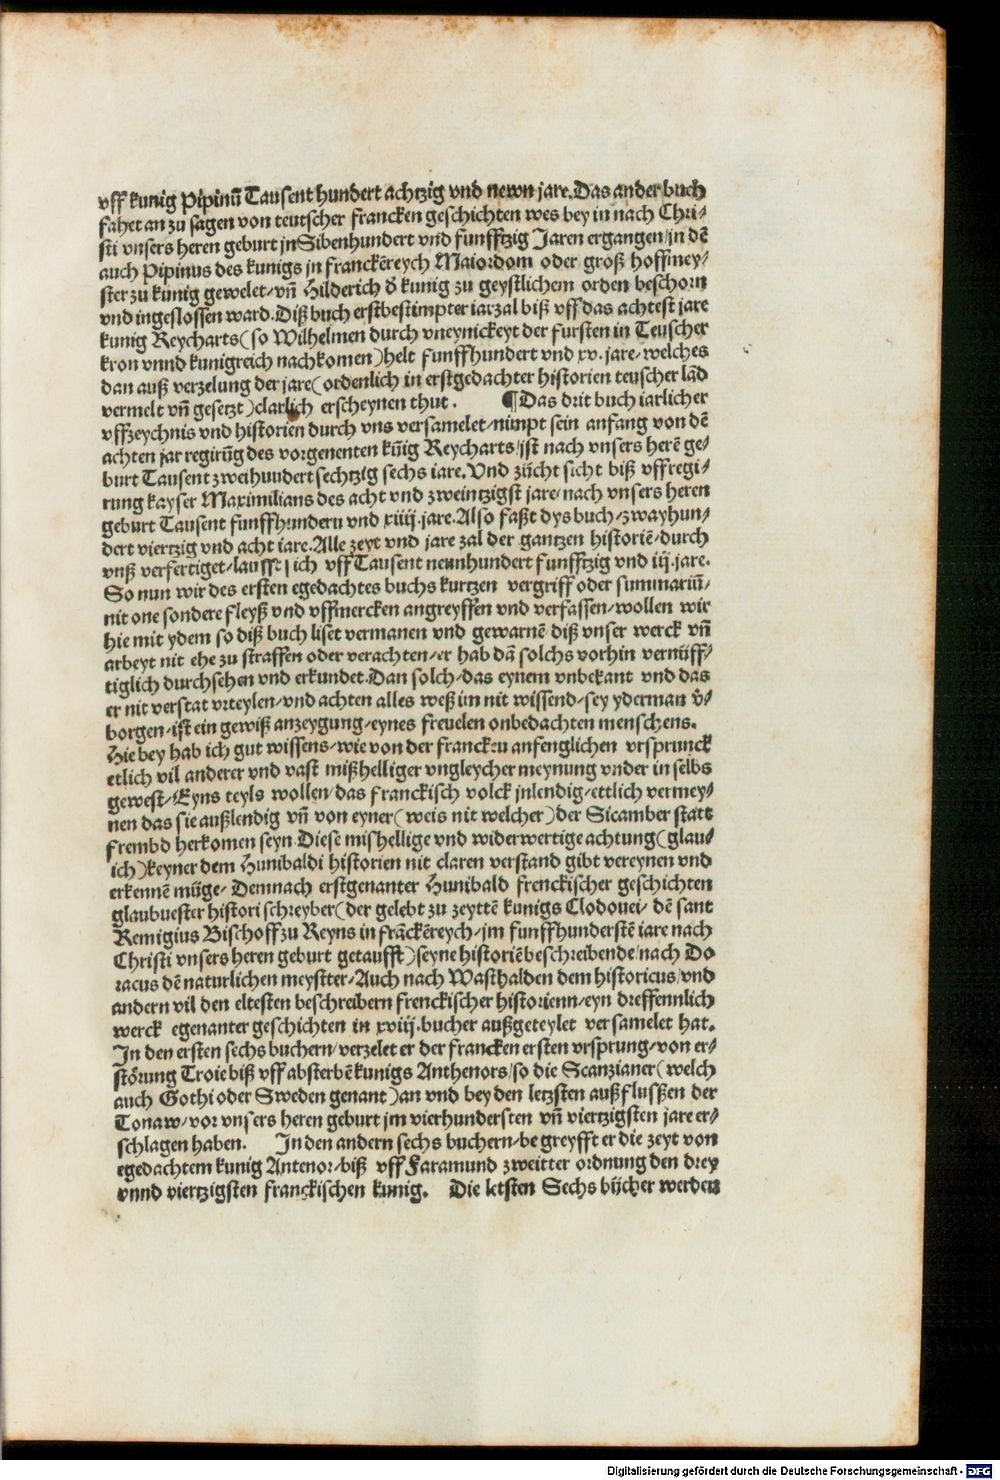 vff kunig Pipinū Tausent hundert achtzig vnd newn jare. Das ander buch
fahet an zu sagen von teutscher francken geschichten wes bey in nach Chri⸗
sti vnsers heren geburt jn Sibenhundert vnd funfftzig Jaren ergangen/ jn dē
auch Pipinus des kunigs jn franckēreych Maiordom oder groß hoffmey⸗
ster zu kunig gewelet/ vn̄ Hilderich d̕ kunig zu geystlichem orden beschorn
vnd ingeslossen ward. Diß buch erstbestimpter iarzal biß vff das achtest jare
kunig Reycharts( so Wilhelmen durch vneynickeyt der fursten in Teuscher
kron vnnd kunigreich nachkomen) helt funffhundert vnd xv. jare/ welches
dan auß verzelung der jare( ordenlich in erstgedachter historien teuscher lād
vermelt vn̄ gesetzt) clarlich erscheynen thut. ¶ Das drit buch iarlicher
vffzeychnis vnd historien durch vns versamelet/ nimpt sein anfang von dē
achten jar regirūg des vorgenenten kūig Reycharts/ jst nach vnsers herē ge⸗
burt Tausent zweihundert sechtzig sechs iare. Vnd zūcht sicht biß vff regi⸗
rung kayser Maximilians des acht vnd zweintzigst jare/ nach vnsers heren
geburt Tausent funffhundern vnd xiiij. jare. Also faßt dys buch/ zwayhun⸗
dert viertzig vnd acht iare. Alle zeyt vnd jare zal der gantzen historiē/ durch
vnß verfertiget/ laufft sich vff Tausent neunhundert funfftzig vnd iij. jare.
So nun wir des ersten egedachtes buchs kurtzen vergriff oder summariū/
nit one sondere fleyß vnd vffmercken angreyffen vnd verfassen/ wollen wir
hie mit ydem so diß buch liset vermanen vnd gewarnē diß vnser werck vn̄
arbeyt nit ehe zu straffen oder verachten/ er hab dā solchs vorhin vernüff⸗
tiglich durchsehen vnd erkundet. Dan solch/ das eynem vnbekant vnd das
er nit verstat vrteylen/ vnd achten alles weß im nit wissend/ sey yderman v̕⸗
borgen/ ist ein gewiß anzeygung/ eynes freuelen onbedachten menschens.
Hie bey hab ich gut wissens/ wie von der francken anfenglichen vrsprunck
etlich vil anderer vnd vast mißhelliger vngleycher meynung vnder in selbs
gewest/ Eyns teyls wollen/ das franckisch volck jnlendig/ ettlich vermey⸗
nen das sie außlendig vn̄ von eyner( weis nit welcher) der Sicamber statt
frembd herkomen seyn. Diese mishellige vnd widerwertige achtung( glau⸗
ich) keyner dem Hunibaldi historien nit claren verstand gibt vereynen vnd
erkennē müge/ Demnach erstgenanter Hunibald frenckischer geschichten
glaubuester histori schreyber( der gelebt zu zeyttē kunigs Clodouei/ dē sant
Remigius Bischoff zu Reyns in frāckēreych/ jm funffhunderstē iare nach
Christi vnsers heren geburt getaufft) seyne historiē beschreibende/ nach Do
racus dē naturlichen meystter/ Auch nach Wasthalden dem historicus/ vnd
andern vil den eltesten beschreibern frenckischer historienn/ eyn dreffennlich
werck egenanter geschichten in xviij. bucher außgeteylet versamelet hat.
In den ersten sechs buchern/ verzelet er der francken ersten vrsprung/ von er⸗
störung Troie biß vff absterbē kunigs Anthenors/ so die Scanzianer( welch
auch Gothi oder Sweden genant) an vnd bey den letzsten außflusßen der
Tonaw/ vor vnsers heren geburt jm vierhundersten vn̄ viertzigsten jare er⸗
schlagen haben. In den andern sechs buchern/ be greyfft er die zeyt von
egedachtem kunig Antenor/ biß vff Faramund zweitter ordnung den drey
vnnd viertzigsten franckischen kunig. Die letsten Sechs bücher werden
Digitalisierung gefördert durch die Deutsche Forschungsgemeinschaft - DFG